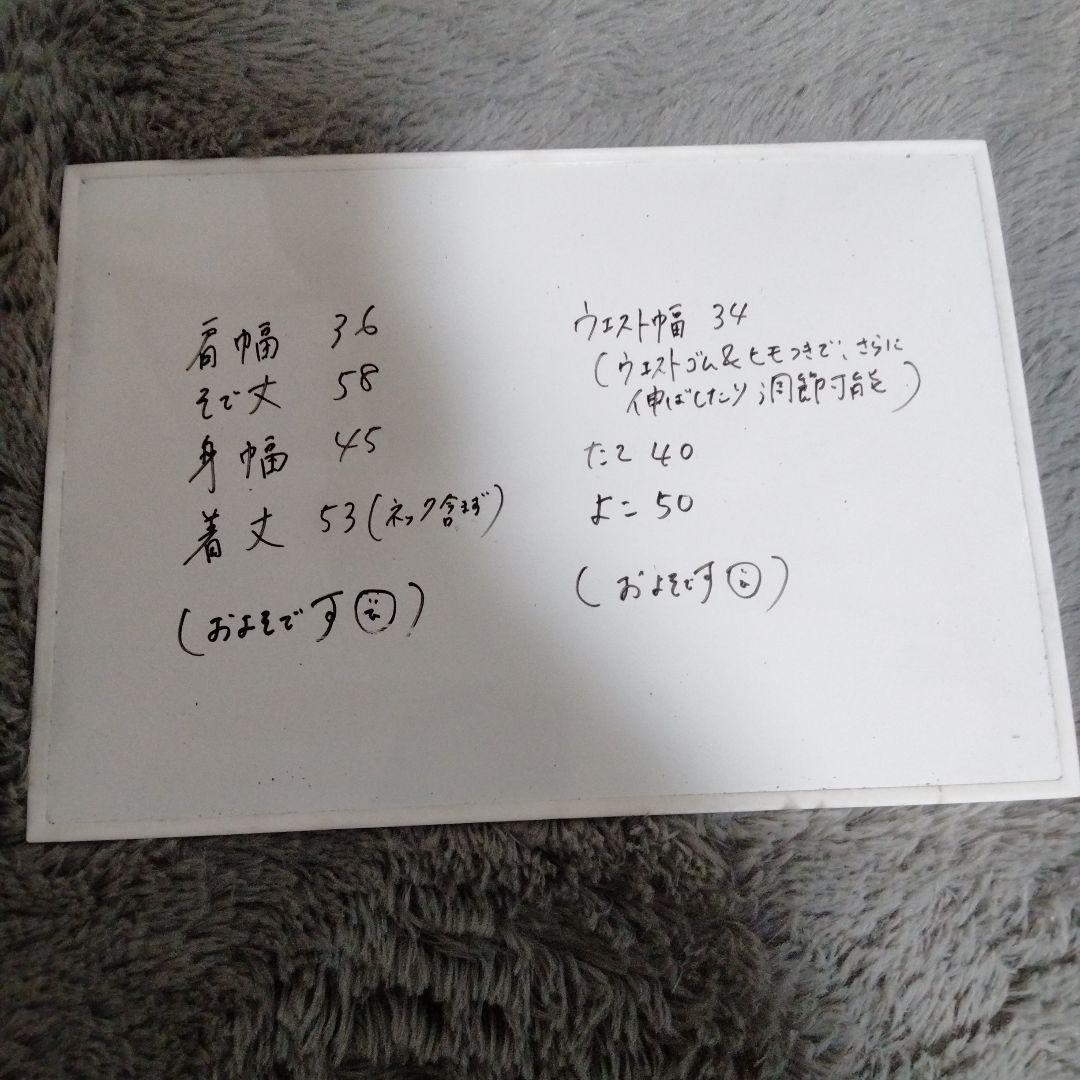 肩幅 36
そで丈 58
身幅 45
着丈 53(ネック含まず)
(およそです)
ウエスト幅 34
(ウエストゴム&ヒモつきで、さらに
伸ばしたり調節可能)
たて 40
よこ 50
(およそです)